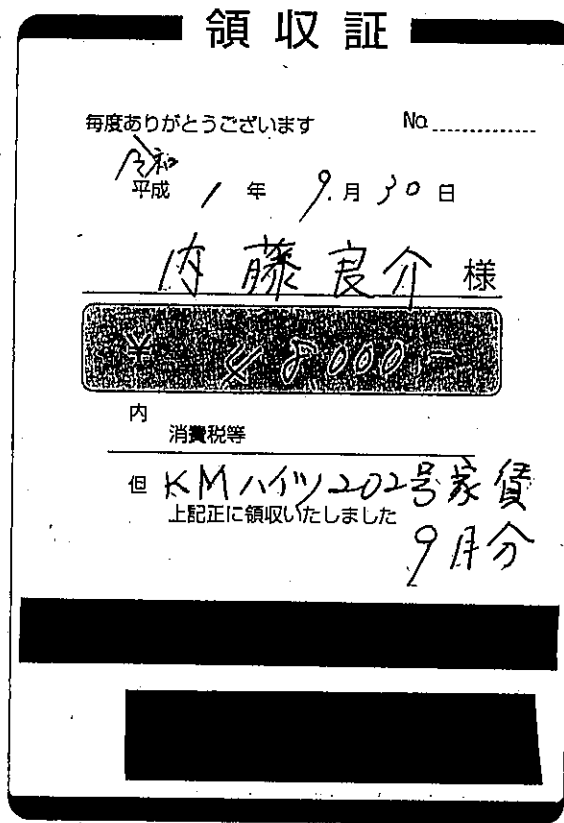 領収証
毎度ありがとうございます No.
令和
平成 1 年 9.月 30 日
内藤良介 様
¥ 48000-
内
消費税等
但 KMハイツ202号家賃
上記正に領収いたしました
9月分